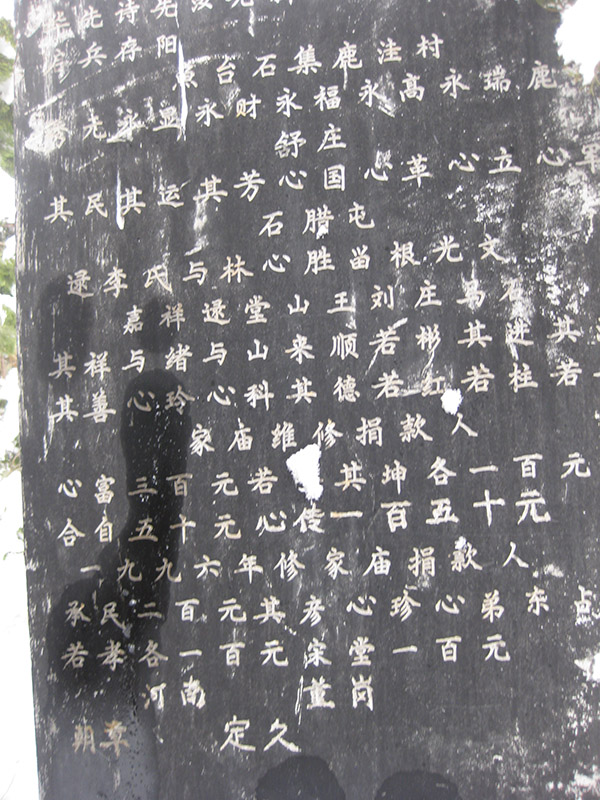 华先诗先
彦兵存阳
台石集鹿洼村
秀尤永 永财永福永高永瑞鹿
永舒庄
其民其运其芳心国心革心立心军
石腊屯
逯李氏与林心胜 根光文
嘉祥逯堂山王刘庄马石
其祥与绪与山来顺若彬其进其
其善心玲心科其德若红若柱若
家庙维修捐款人
心富三百元若 其坤各一百元
合自五十元心传一百五十元
一九九六年修家庙捐款人
承民二百元其彦心珍心弟东点
若孝各一百元宋堂一百元
河南 董岗
朝章 定久